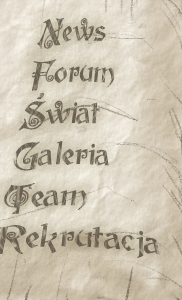 News
Forum
Świat
Galeria
Team
Rekrutacja